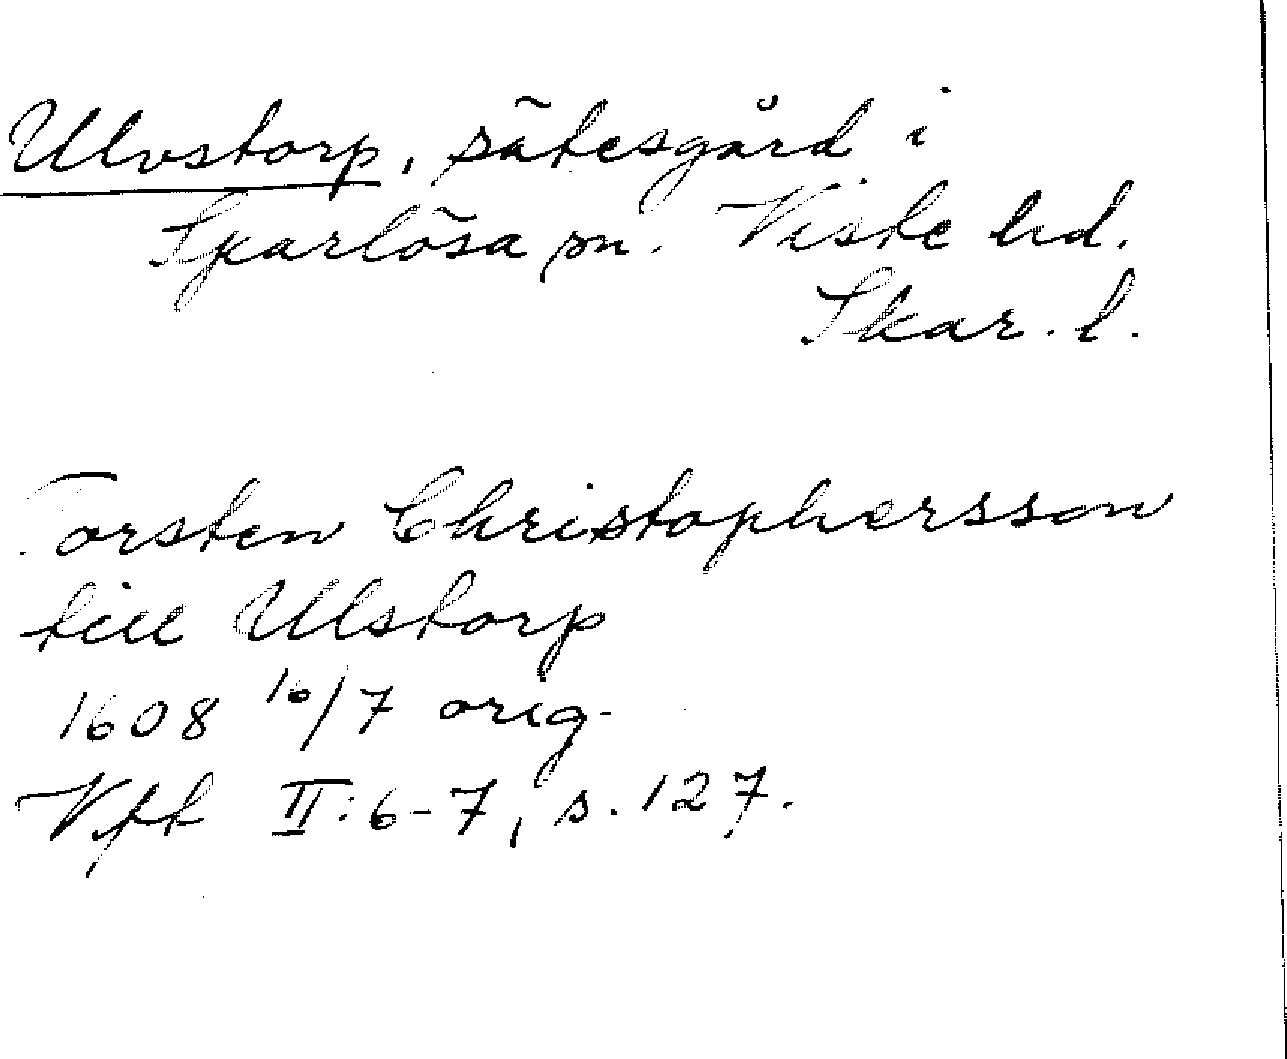 Ulvstorp, sätesgård i
Sparlösa sn. Viste hd.
Skar. l.
Torsten Christophersson
till Ulstorp
1608 16/7 orig.
Vft II: 6-7, s. 127.